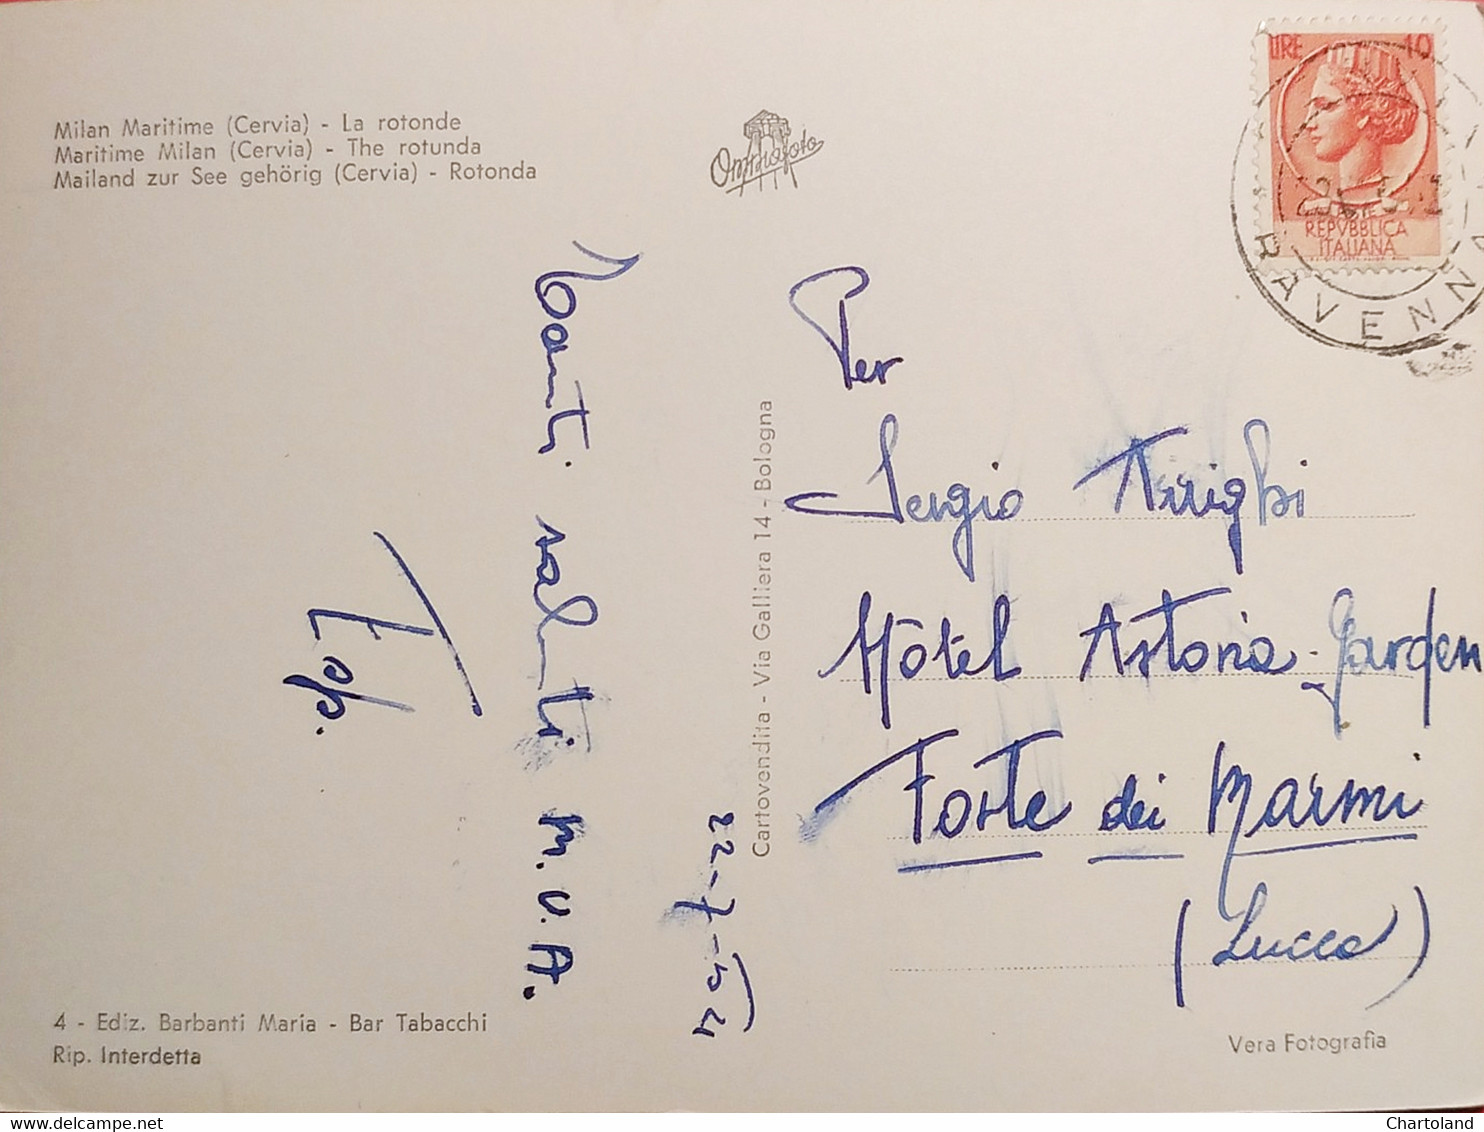 Milan Maritime (Cervia) - La rotonde
Maritime Milan (Cervia) - The rotunda
Mailand zur See gehörig (Cervia) - Rotonda
Omniafoto
LIRE 10
POSTE
REPVBBLICA
ITALIANA
RAVENNA
Tanti saluti M.V.A.
22-7-54
Cartovendita - Via Galliera 14 - Bologna
Per
Sergio Arrighi
Hôtel Astoria-Garden
Forte dei Marmi
(Lucca)
4 - Ediz. Barbanti Maria - Bar Tabacchi
Rip. Interdetta
Vera Fotografia
delcampe.net
Chartoland